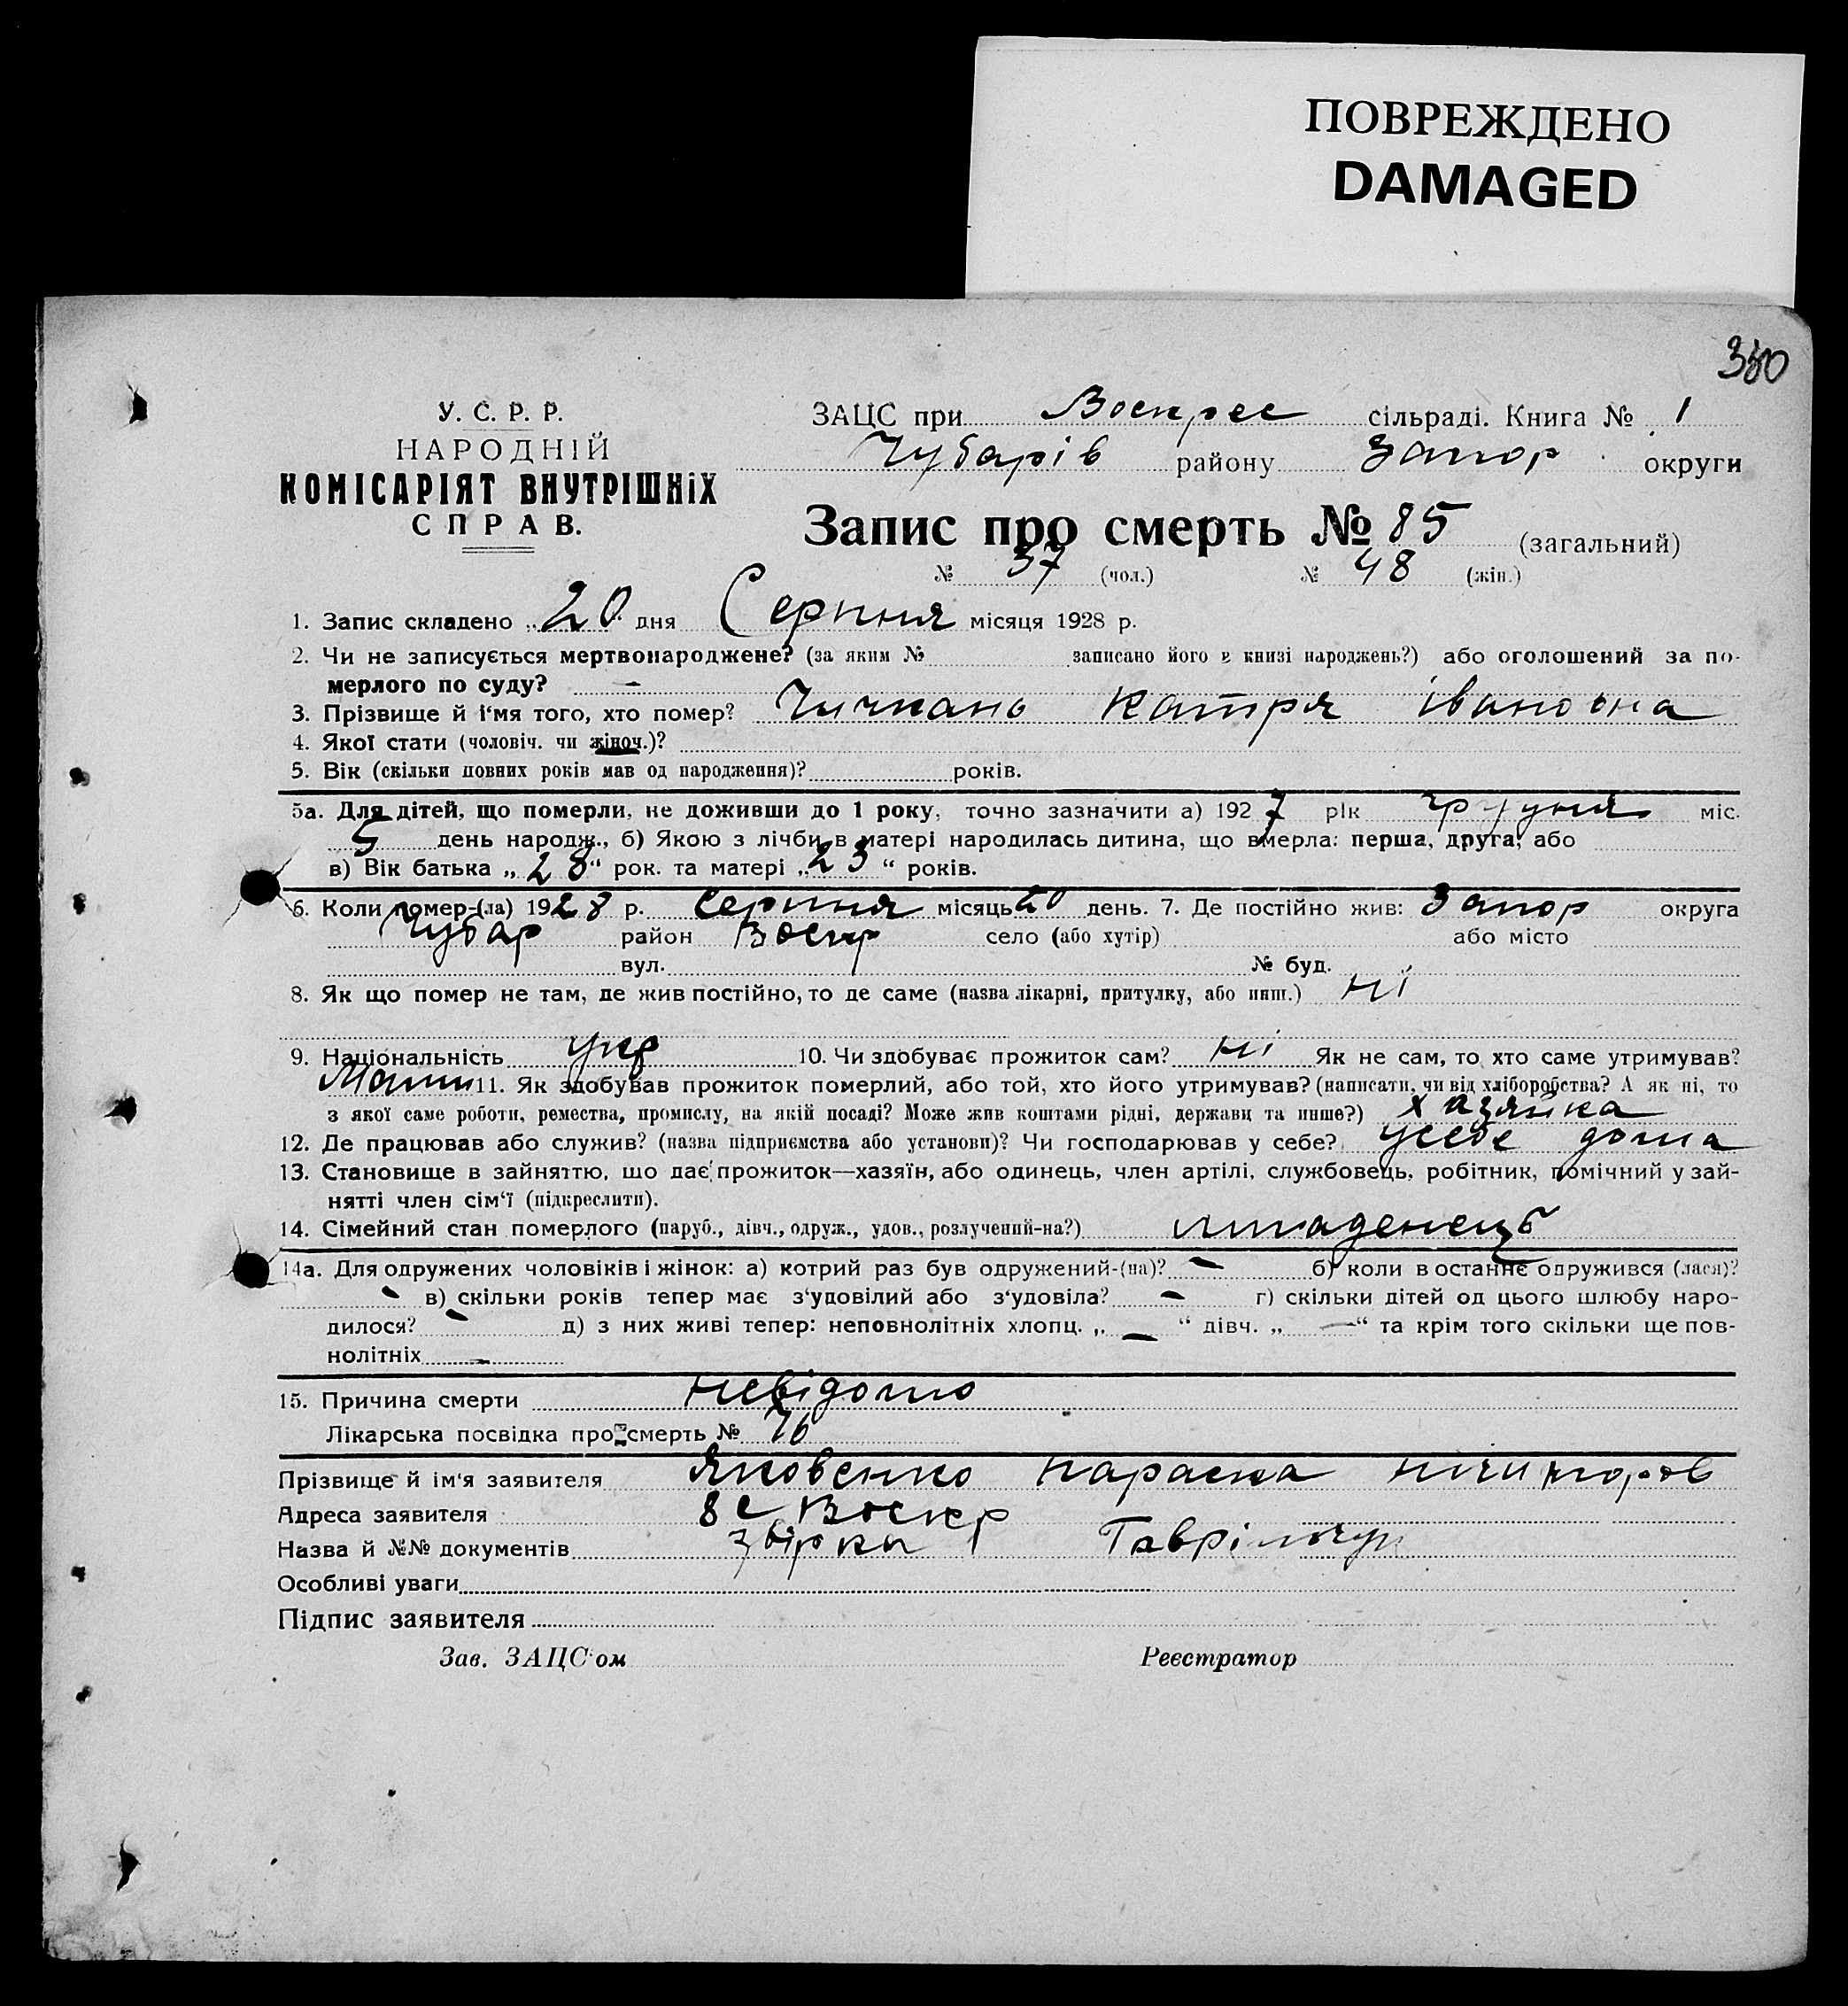 ПОВРЕЖДЕНО
DAMAGED
У. С. Р. Р.
НАРОДНІЙ
КОМІСАРІЯТ ВНУТРІШНіХ
СПРАВ.
ЗАЦС при Воскрес сільраді. Книга № 1
Чубарів району Запор округи
Запис про смерть № 85 (загальний)
№ 37 (чол.) № 48 (жін.)
1. Запис складено „20" дня Серпня місяця 1928 р.
2. Чи не записується мертвонароджене? (за яким № записано його в книзі народжень?) або оголошений за по-
мерлого по суду? —
3. Прізвище й і'мя того, хто помер? Чичкань Катря Івановна
4. Якої стати (чоловіч. чи жіноч.)?
5. Вік (скільки повних років мав од народження)? років.
5а. Для дітей, що померли, не доживши до 1 року, точно зазначити а) 1927 рік грудня міс.
5 день народж., б) Якою з лічби в матері народилась дитина, що вмерла: перша, друга, або
в) Вік батька „28" рок. та матері „23" років.
6. Коли помер-(ла) 1928 р. Серпня місяць 20 день. 7. Де постійно жив: Запор округа
Чубар район Воскр село (або хутір) або місто
вул. № буд.
8. Як що помер не там, де жив постійно, то де саме (назва лікарні, притулку, або инш.) Ні
9. Національність Укр 10. Чи здобуває прожиток сам? Ні Як не сам, то хто саме утримував?
11. Як здобував прожиток померлий, або той, хто його утримував? (написати, чи від хліборобства? А як ні, то
з якої саме роботи, ремества, промислу, на якій посаді? Може жив коштами рідні, держави та инше?) хазяйка
12. Де працював або служив? (назва підприємства або установи)? Чи господарював у себе? усебе дома
13. Становище в зайняттю, що дає прожиток—хазяїн, або одинець, член артілі, службовець, робітник, помічний у зай-
нятті член сім'ї (підкреслити).
14. Сімейний стан померлого (паруб., дівч., одруж., удов., розлучений-на?) младенець
14а. Для одружених чоловіків і жінок: а) котрий раз був одружений-(на)? — б) коли в останнє одружився (лася)?
— в) скільки років тепер має з'удовілий або з'удовіла? — г) скільки дітей од цього шлюбу наро-
дилося? — д) з них живі тепер: неповнолітніх хлопц. „—" дівч. „—" та крім того скільки ще пов-
нолітніх —
15. Причина смерти Невідомо
Лікарська посвідка про смерть № 76
Прізвище й ім'я заявителя Яковенко Параска Ничипоров
Адреса заявителя с Воскр
Назва й №№ документів
Особливі уваги
Підпис заявителя
Зав. ЗАЦС'ом Реєстратор